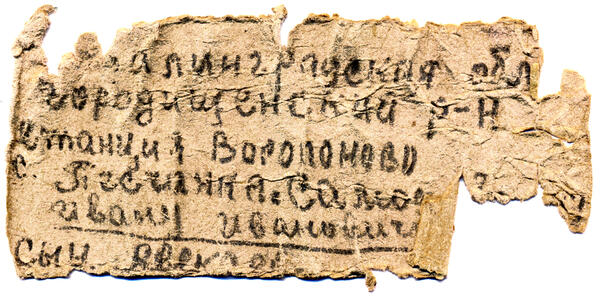 алинградская обл
городищенский р-н
станция Воропоново
с. Песчанка.
Ивану Ивановичу